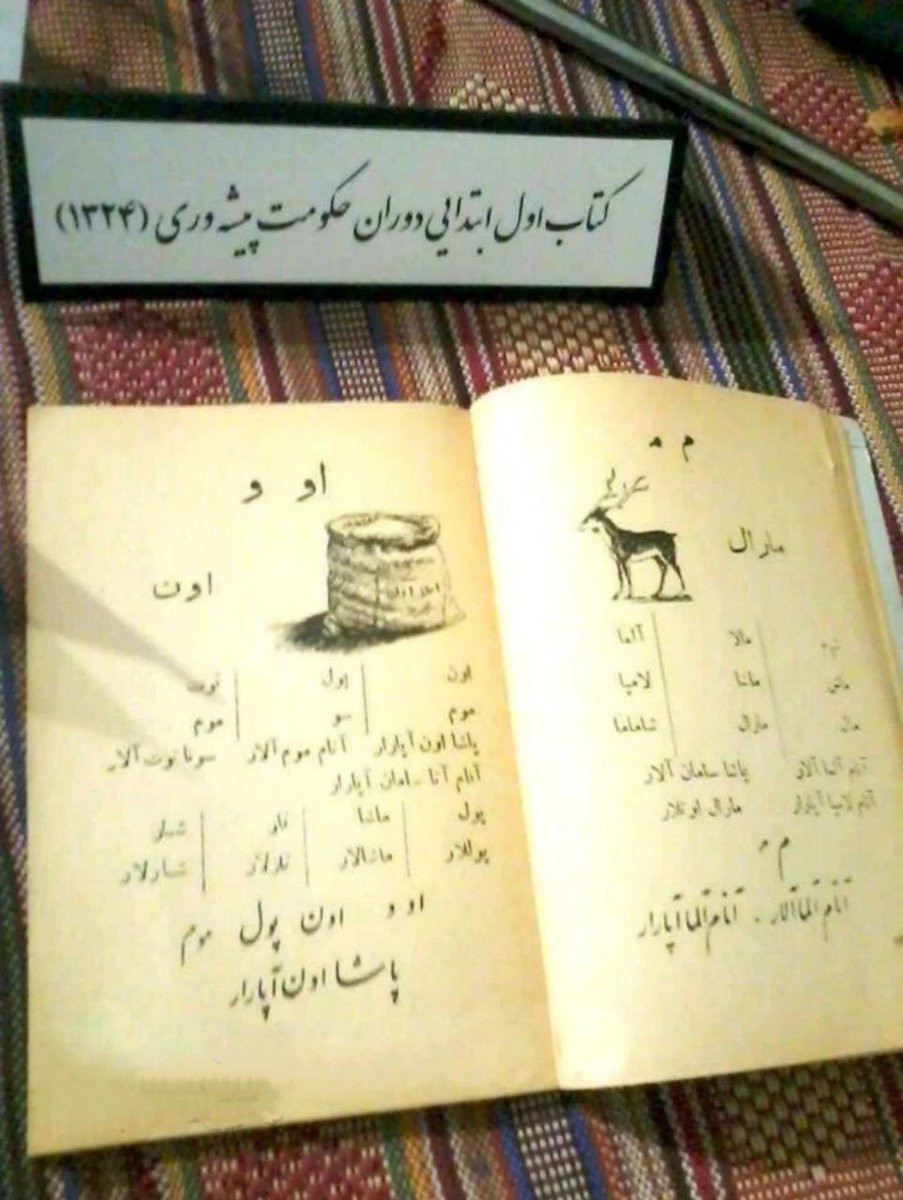 کتاب اول ابتدایی دوران حکومت پیشه وری (۱۳۲۴)
م مـ
مارال
مالا آلما
ماش ماشا لامپا
مال مارال شاماما
آنام آلما آلار پاشا سامان آلار
آنام لامپا آپارار مارال اوتلار
م مـ
آنام آلما آلار . آنام آلما آپارار
او و
اون
اون پول توت
موم سو موم
پاشا اون آپارار آنام موم آلار سونا توت آلار
آنام آتا سامان آپارار
پول ماشا تار شار
پوللار ماشالار تارلار شارلار
او و اون پول موم
پاشا اون آپارار